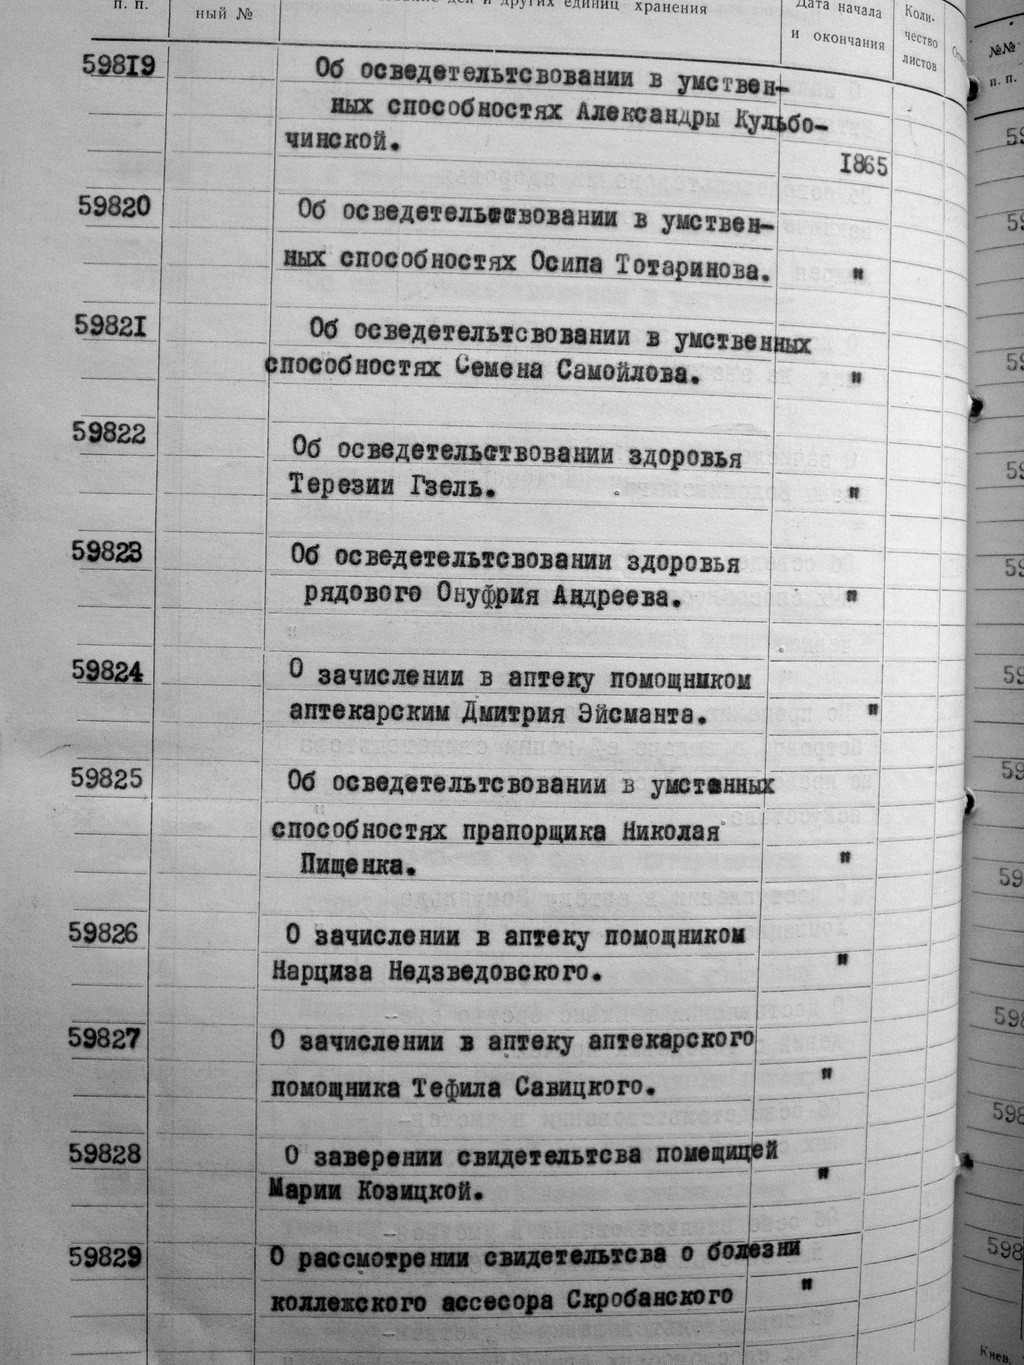 п. п.
ный №
и других единиц хранения
Дата начала
и окончания
Коли-
чество
листов
№№
п. п.
59819
Об осведетельтсвовании в умствен-
ных способностях Александры Кульбо-
чинской.
1865
59820
Об осведетельствовании в умствен-
ных способностях Осипа Тотаринова.
"
59821
Об осведетельтсвовании в умственных
способностях Семена Самойлова.
"
59822
Об осведетельствовании здоровья
Терезии Гзель.
"
59823
Об осведетельтсвовании здоровья
рядового Онуфрия Андреева.
"
59824
О зачислении в аптеку помощником
аптекарским Дмитрия Эйсманта.
"
59825
Об осведетельтсвовании в умстенных
способностях прапорщика Николая
Пищенка.
"
59826
О зачислении в аптеку помощником
Нарциза Недзведовского.
"
59827
О зачислении в аптеку аптекарского
помощника Тефила Савицкого.
"
59828
О заверении свидетельтсва помещицей
Марии Козицкой.
"
59829
О рассмотрении свидетельтсва о болезни
коллежского ассесора Скробанского
"